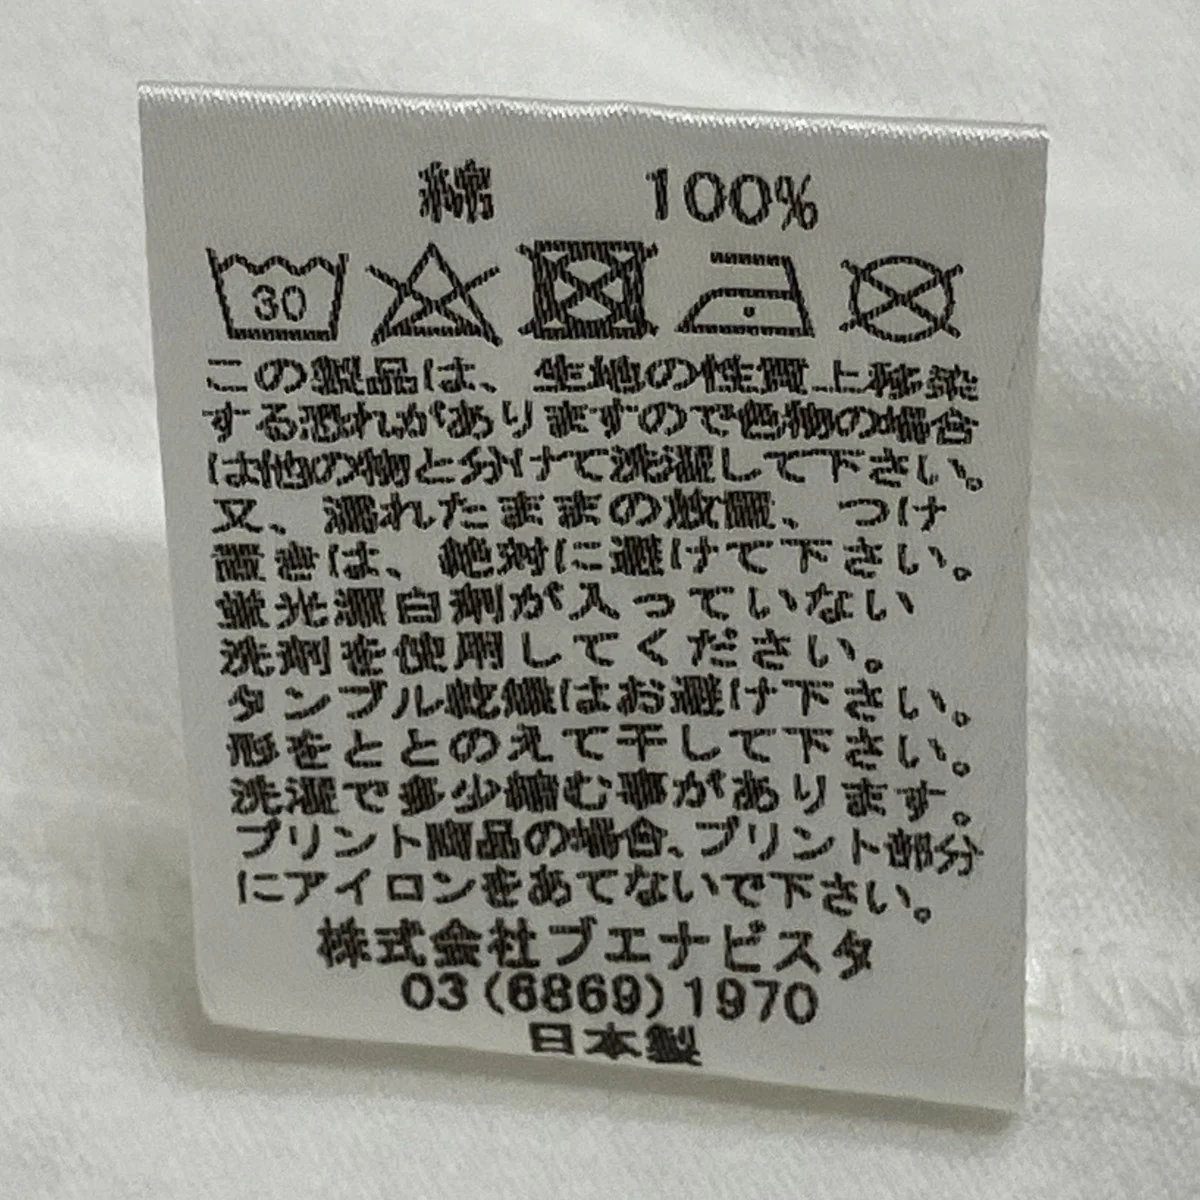 綿 100%
30
この製品は、生地の性質上移染
する恐れがありますので色物の場合
は他の物と分けて洗濯して下さい。
又、濡れたままの放置、つけ
置きは、絶対に避けて下さい。
蛍光漂白剤が入っていない
洗剤を使用してください。
タンブル乾燥はお避け下さい。
形をととのえて干して下さい。
洗濯で多少縮む事があります。
プリント商品の場合、プリント部分
にアイロンをあてないで下さい。
株式会社ブエナビスタ
03(6869)1970
日本製